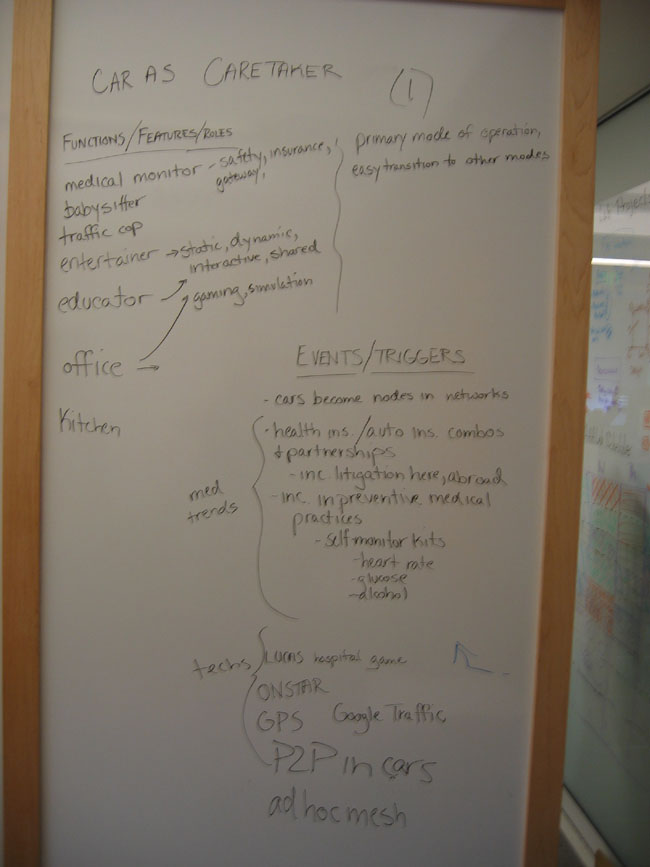 CAR AS CARETAKER (1)
FUNCTIONS/FEATURES/ROLES
medical monitor - safety, insurance,
gateway,
babysitter
traffic cop
entertainer → static, dynamic,
interactive, shared
educator gaming, simulation
office →
Kitchen
primary mode of operation,
easy transition to other modes
EVENTS/TRIGGERS
- cars become nodes in networks
- health ins./auto ins. combos
& partnerships
- inc. litigation here, abroad
- inc. in preventive medical
practices
- self monitor kits
- heart rate
- glucose
- alcohol
med
trends
techs
LUCAS hospital game
ONSTAR
GPS Google Traffic
P2P in cars
ad hoc mesh